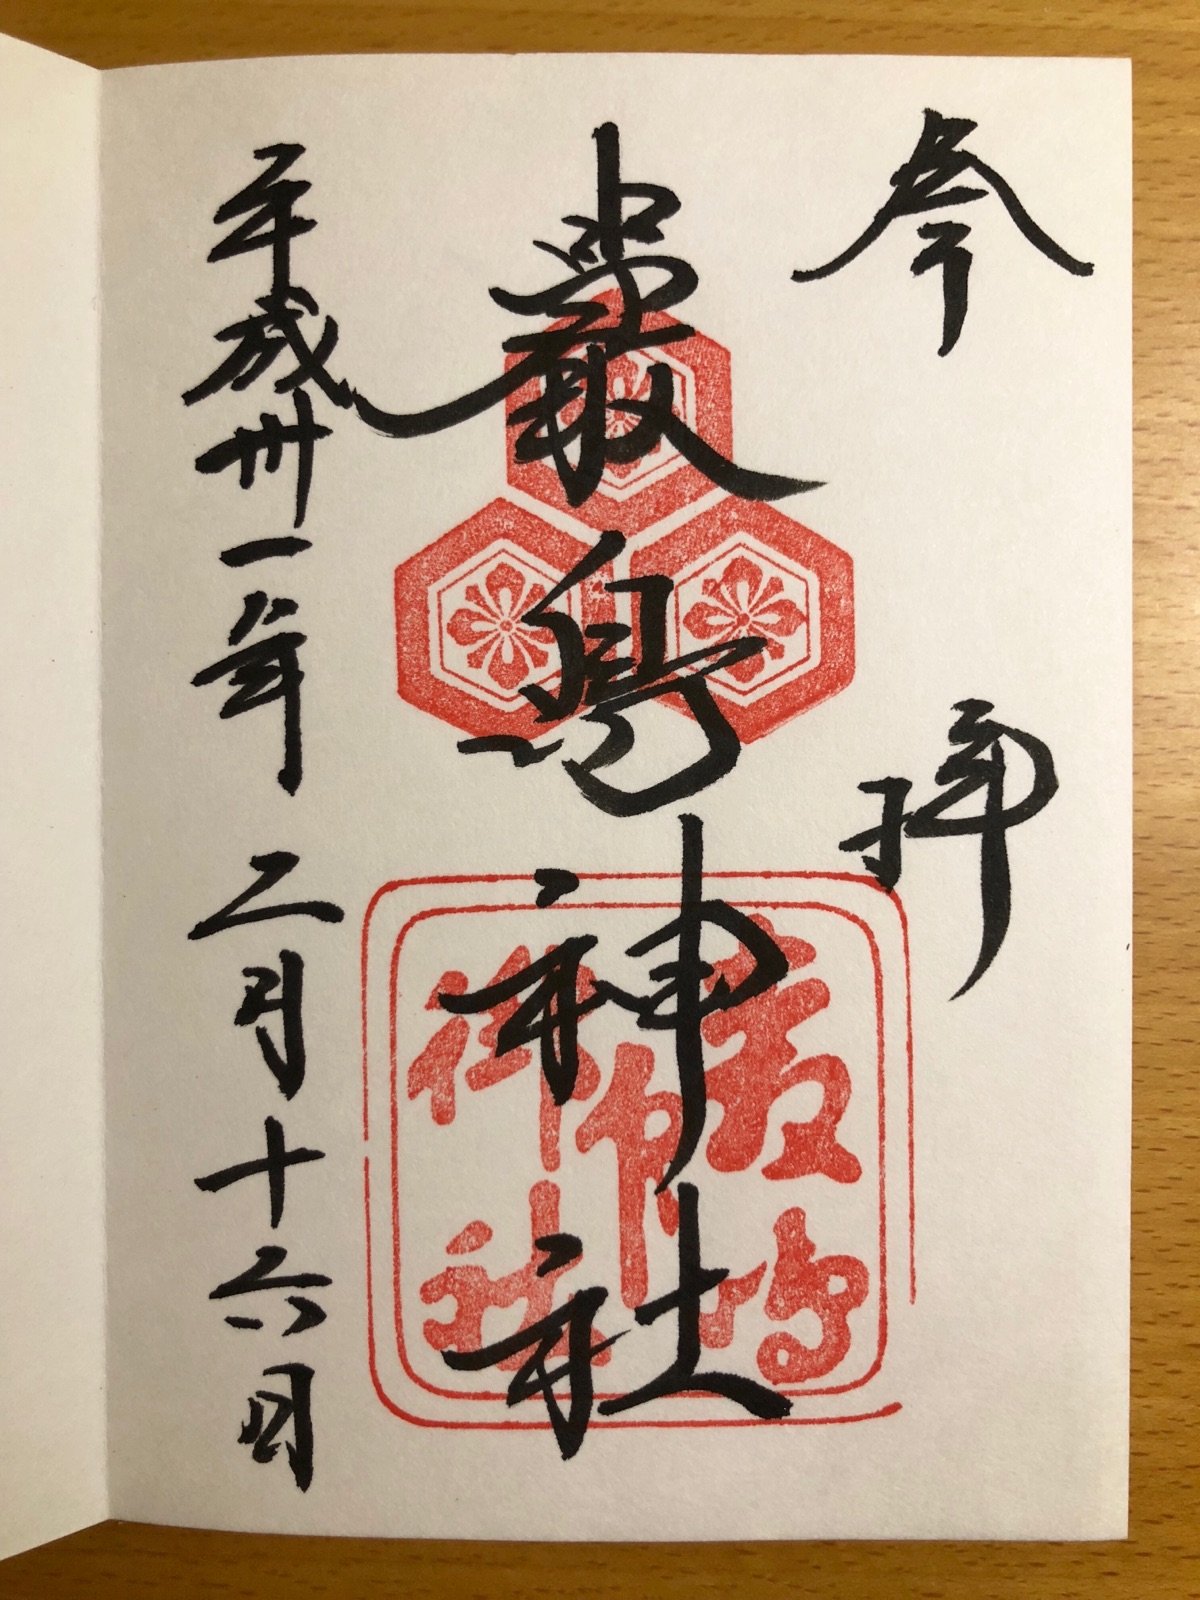 奉拝
嚴島神社
嚴嶋
御社
印
平成卅一年二月十六日